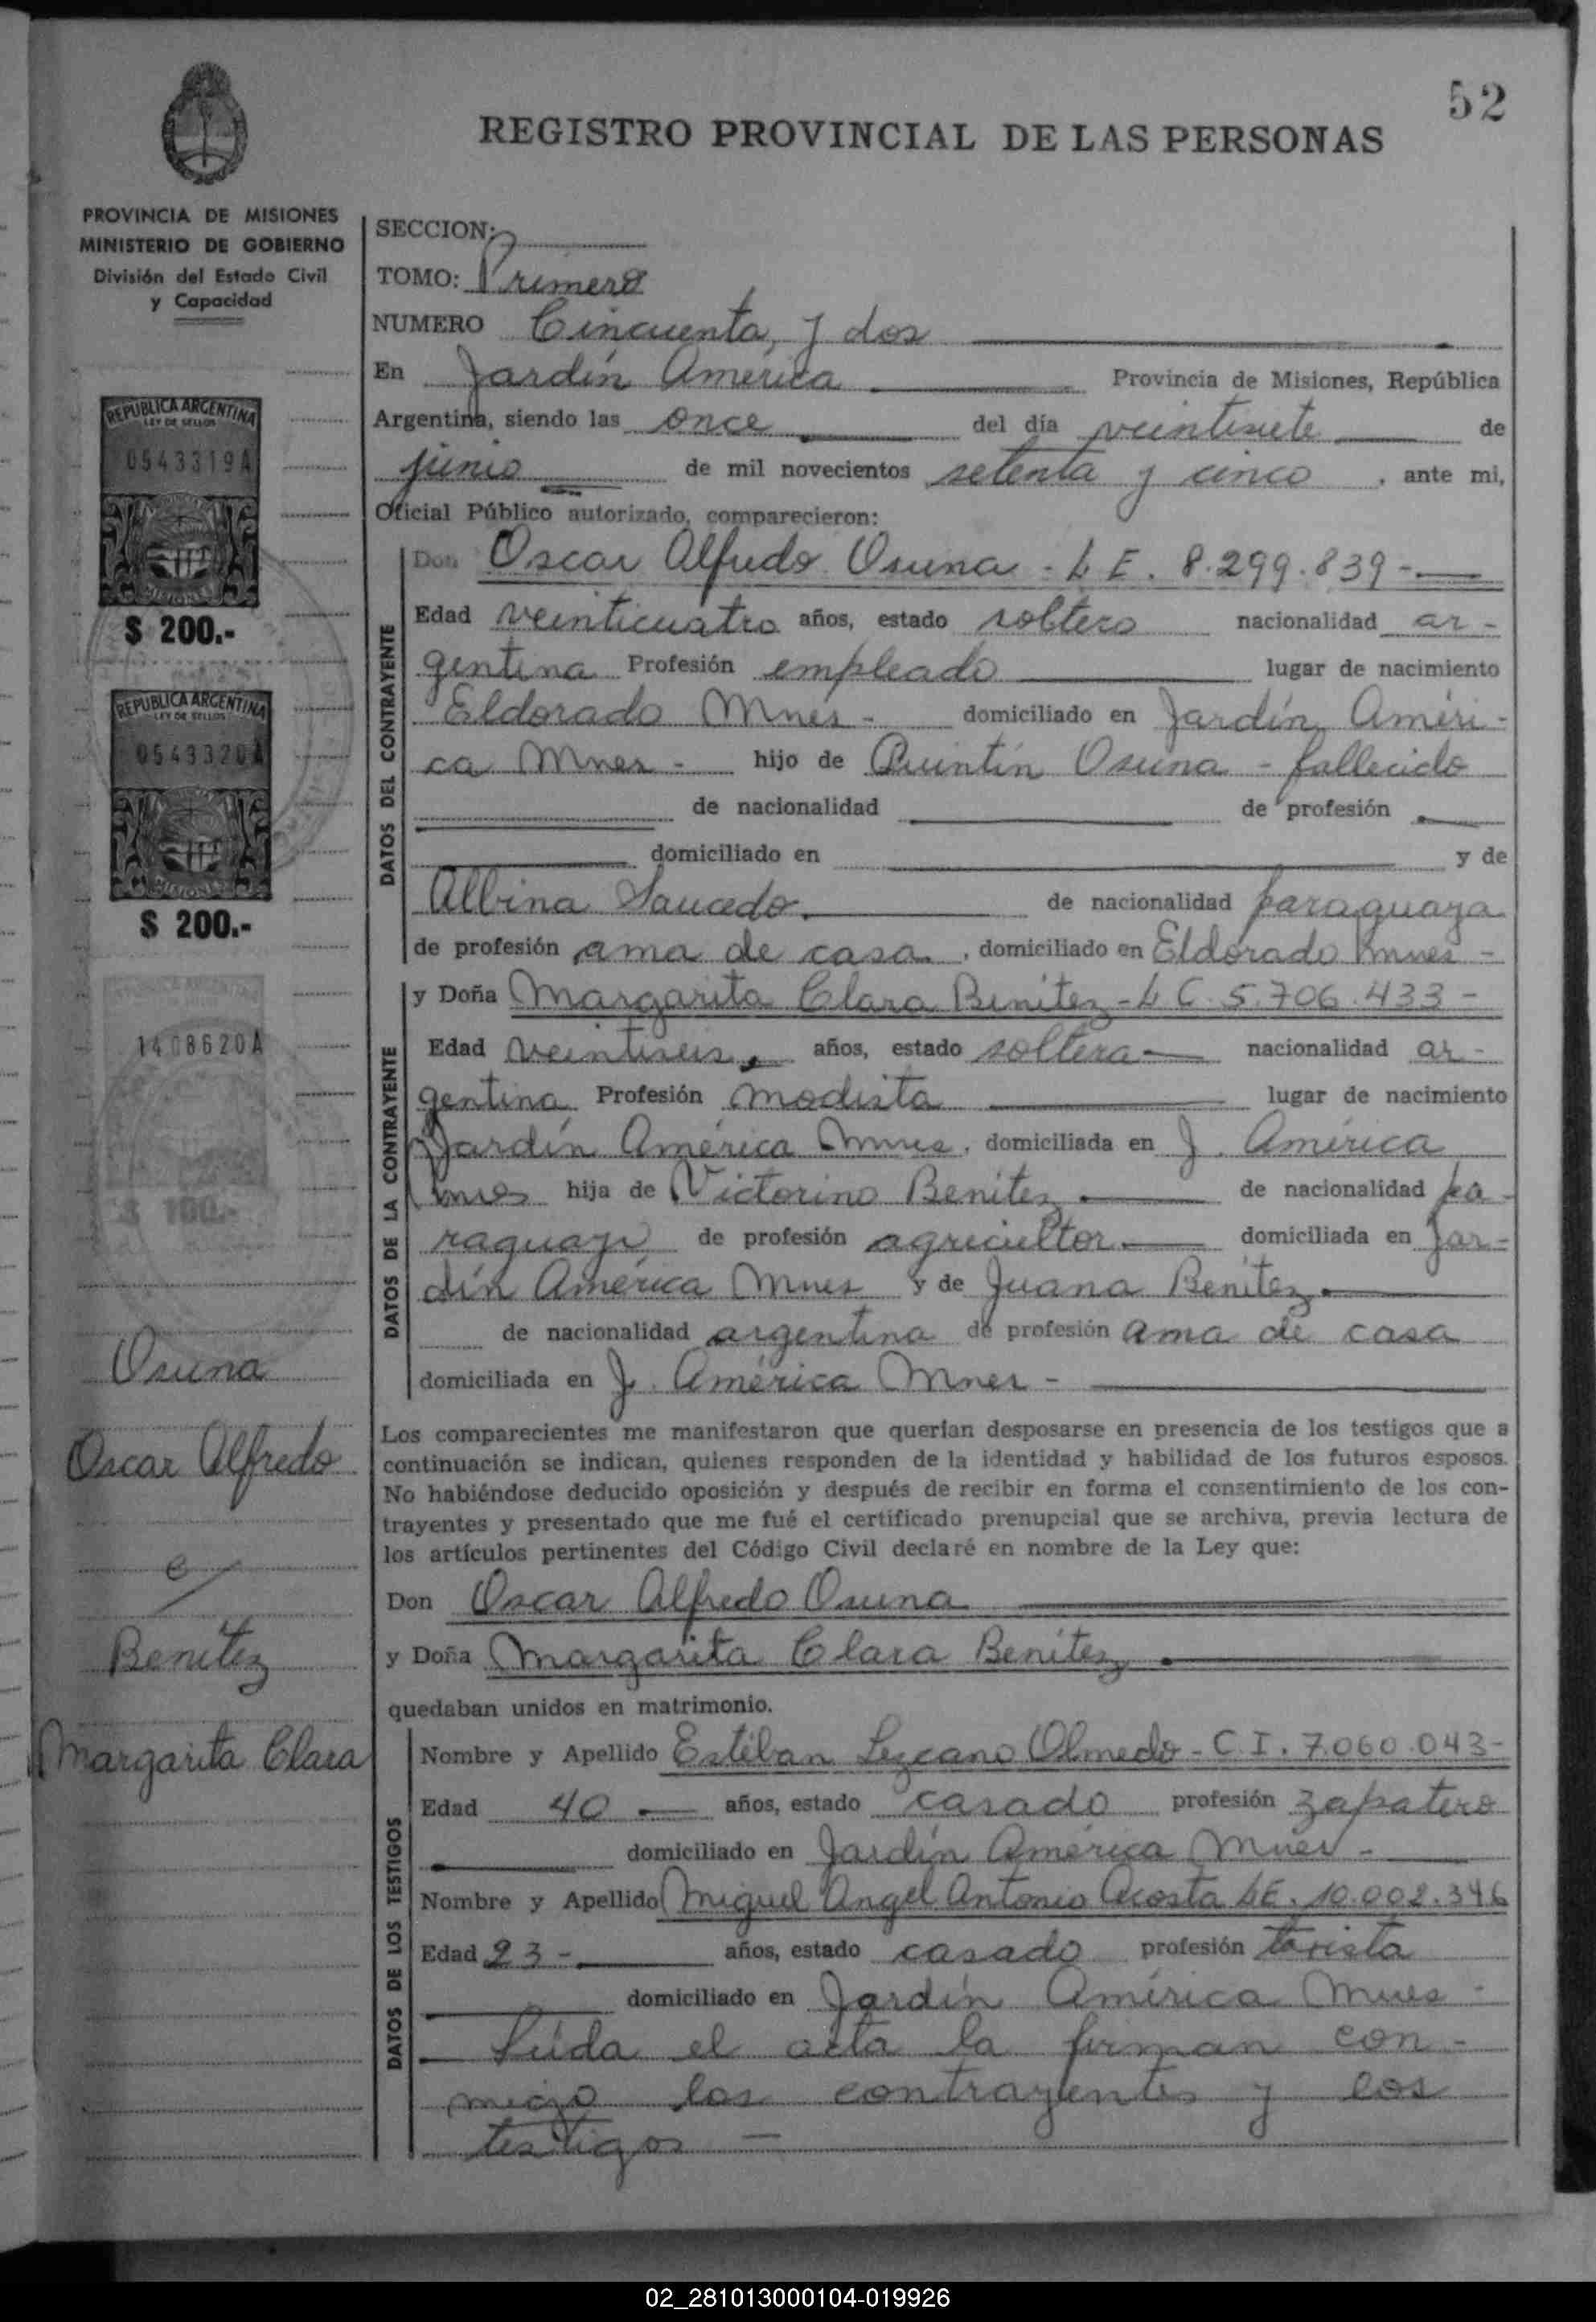 52
REGISTRO PROVINCIAL DE LAS PERSONAS
PROVINCIA DE MISIONES
MINISTERIO DE GOBIERNO
División del Estado Civil
y Capacidad
REPUBLICA ARGENTINA
LEY DE SELLOS
0543319A
MISIONES
$ 200.-
REPUBLICA ARGENTINA
LEY DE SELLOS
0543320A
MISIONES
$ 200.-
1408620A
$ 100.-
Osuna
Oscar Alfredo
c/
Benítez
Margarita Clara
SECCION:
TOMO: Primero
NUMERO Cincuenta y dos
En Jardín América Provincia de Misiones, República
Argentina, siendo las once del día veintisiete de
junio de mil novecientos setenta y cinco, ante mi,
Oficial Público autorizado, comparecieron:
DATOS DEL CONTRAYENTE
Don Oscar Alfredo Osuna - L E. 8.299.839 -
Edad veinticuatro años, estado soltero nacionalidad ar-
gentina Profesión empleado lugar de nacimiento
Eldorado Mnes - domiciliado en Jardín Améri-
ca Mnes - hijo de Quintín Osuna - fallecido
de nacionalidad de profesión
domiciliado en y de
Albina Saucedo de nacionalidad paraguaya
de profesión ama de casa, domiciliado en Eldorado Mnes -
DATOS DE LA CONTRAYENTE
y Doña Margarita Clara Benítez - L C. 5.706.433 -
Edad veintiseis años, estado soltera nacionalidad ar-
gentina Profesión modista lugar de nacimiento
Jardín América Mnes, domiciliada en J. América
Mnes hija de Victorino Benítez de nacionalidad pa-
raguayo de profesión agricultor domiciliada en Jar-
dín América Mnes y de Juana Benítez
de nacionalidad argentina de profesión ama de casa
domiciliada en J. América Mnes -
Los comparecientes me manifestaron que querían desposarse en presencia de los testigos que a
continuación se indican, quienes responden de la identidad y habilidad de los futuros esposos.
No habiéndose deducido oposición y después de recibir en forma el consentimiento de los con-
trayentes y presentado que me fué el certificado prenupcial que se archiva, previa lectura de
los artículos pertinentes del Código Civil declaré en nombre de la Ley que:
Don Oscar Alfredo Osuna
y Doña Margarita Clara Benítez
quedaban unidos en matrimonio.
DATOS DE LOS TESTIGOS
Nombre y Apellido Estéban Lezcano Olmedo - C.I. 7.060.043 -
Edad 40 años, estado casado profesión zapatero
domiciliado en Jardín América Mnes -
Nombre y Apellido Miguel Angel Antonio Acosta LE. 10.002.346
Edad 23 - años, estado casado profesión
domiciliado en Jardín América Mnes -
Leída el acta la firman con-
migo los contrayentes y los
testigos -
02_281013000104-019926